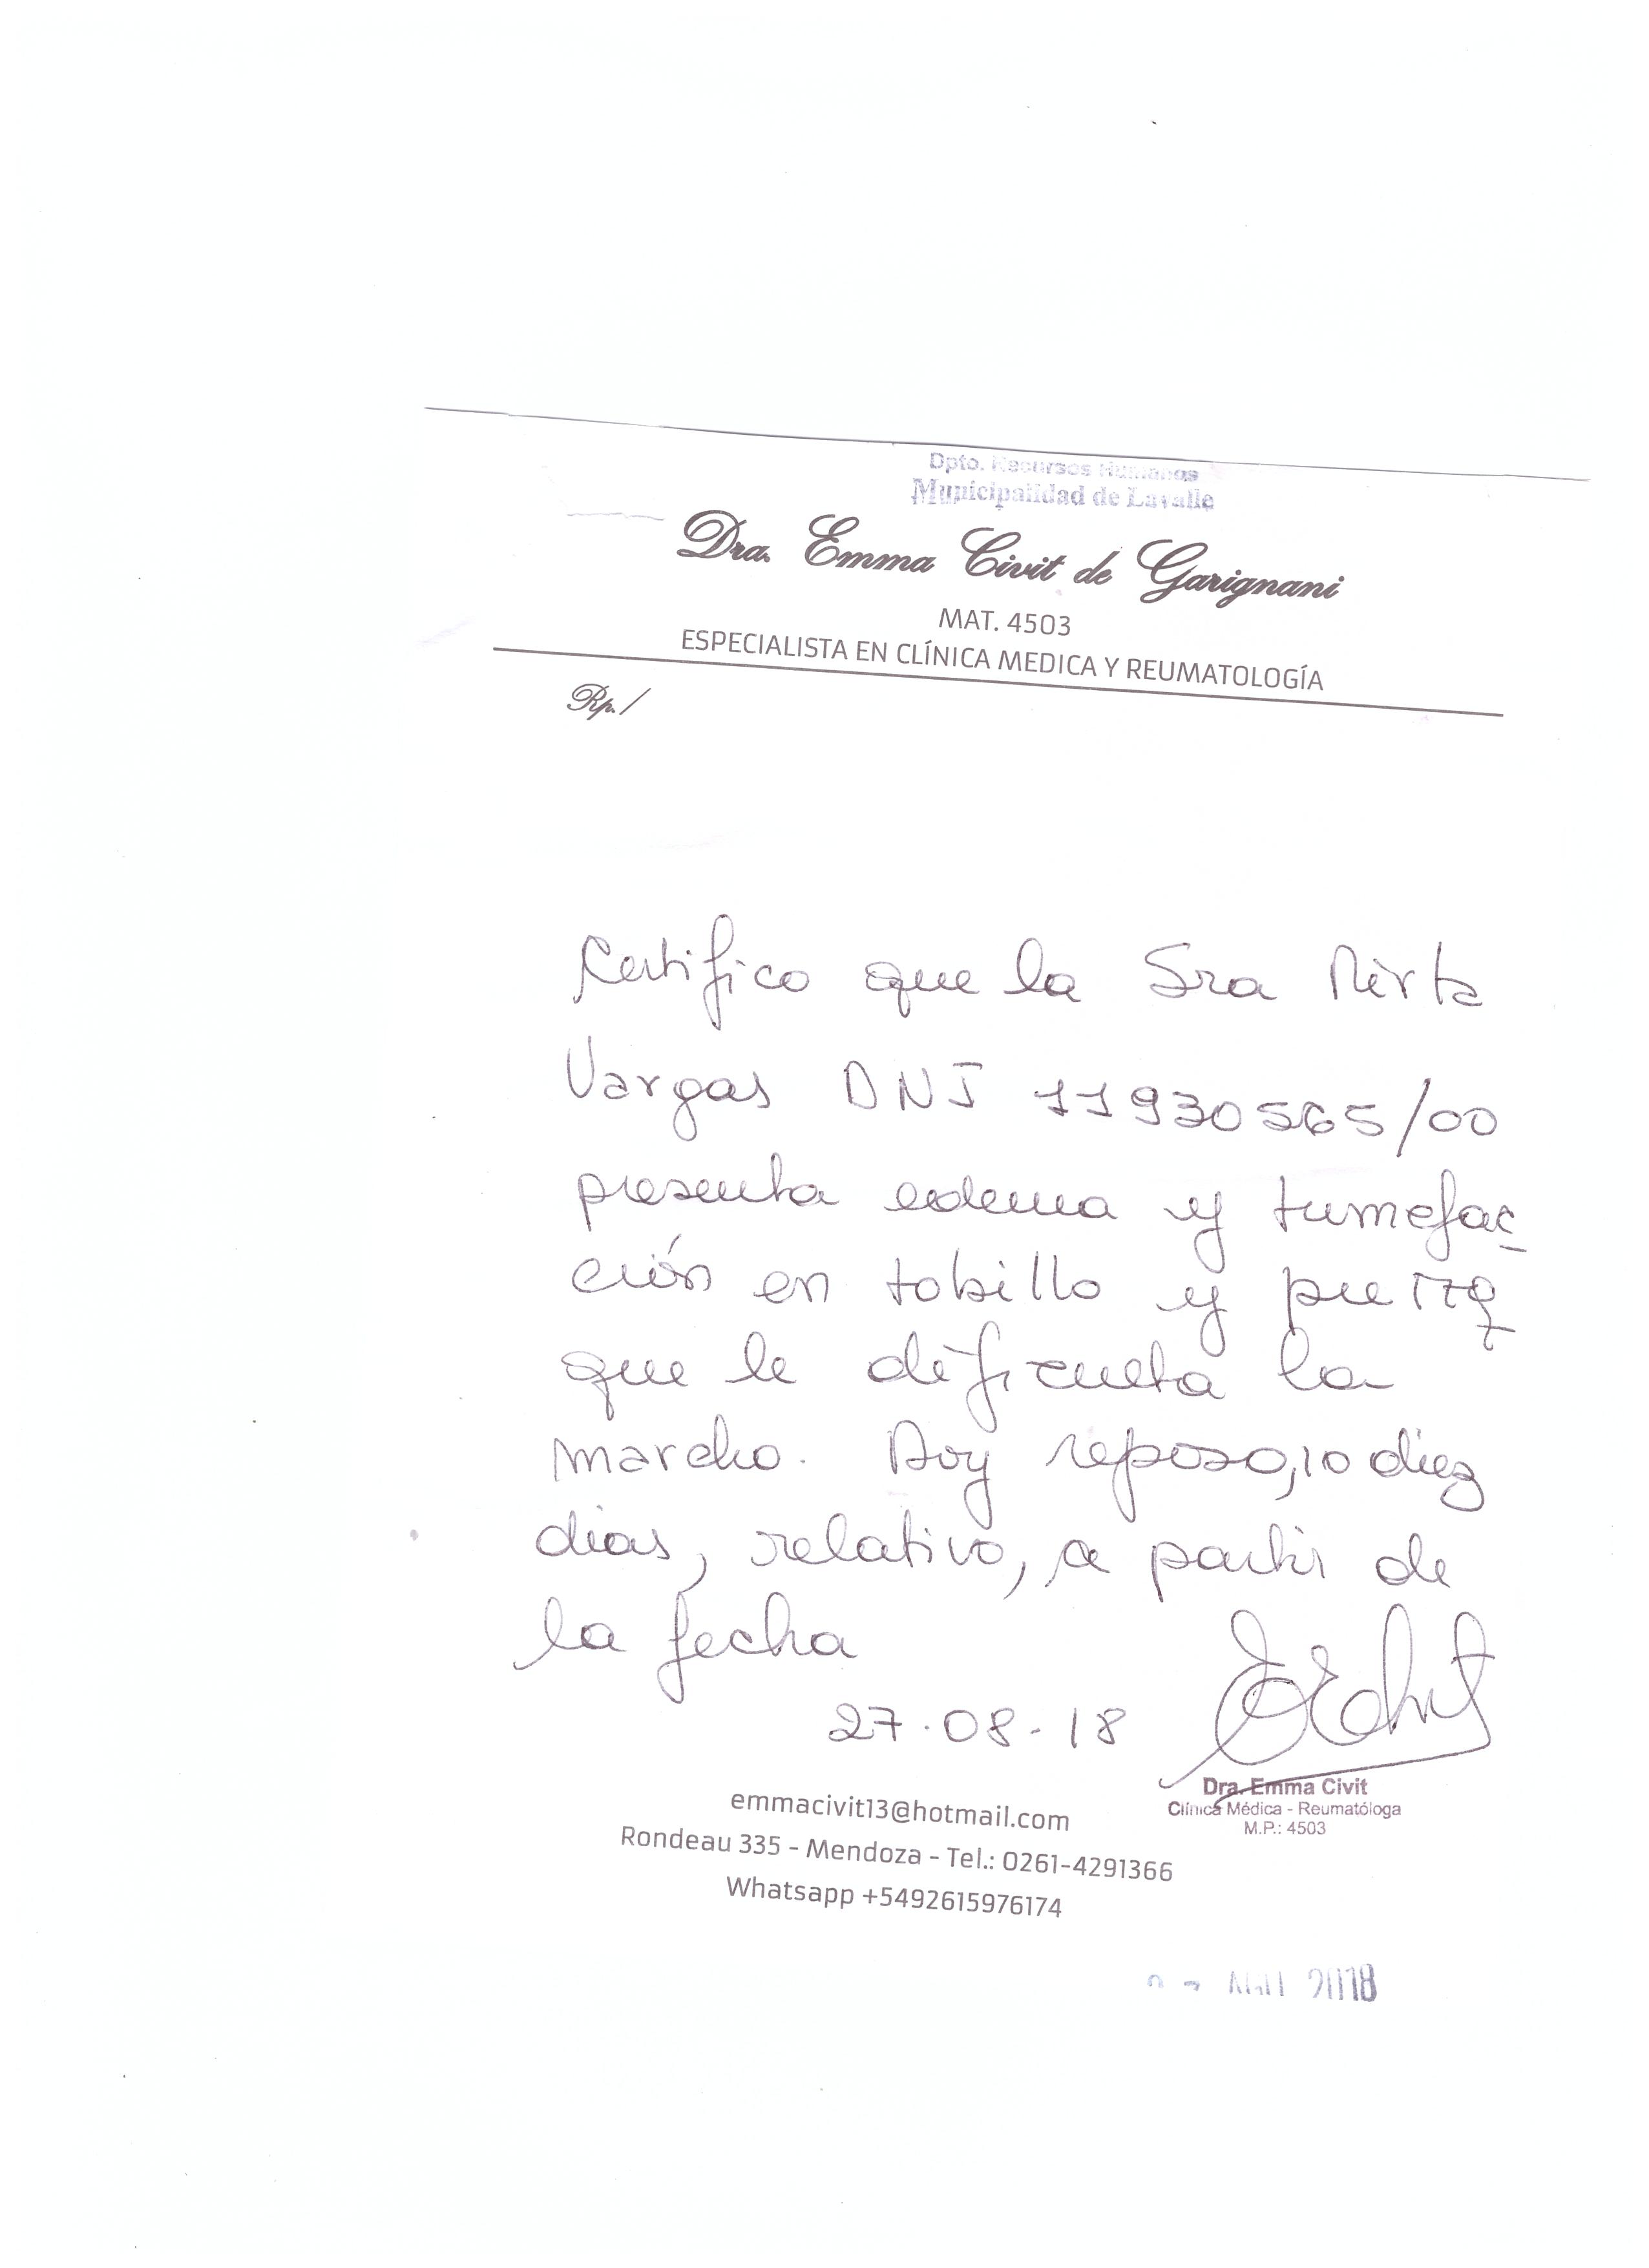 Dpto. Recursos Humanos
Municipalidad de Lavalle
Dra. Emma Civit de Garignani
MAT. 4503
ESPECIALISTA EN CLÍNICA MEDICA Y REUMATOLOGÍA
Rp./
Certifico que la Sra Mirta
Vargas DNI 11930565/00
presenta edema y tumefac-
ción en tobillo y pierna
que le dificulta la
marcha. Doy reposo, 10 diez
dias, relativo, a partir de
la fecha
27-08-18
Dra. Emma Civit
Clínica Médica - Reumatóloga
M.P.: 4503
emmacivit13@hotmail.com
Rondeau 335 - Mendoza - Tel.: 0261-4291366
Whatsapp +5492615976174
2018